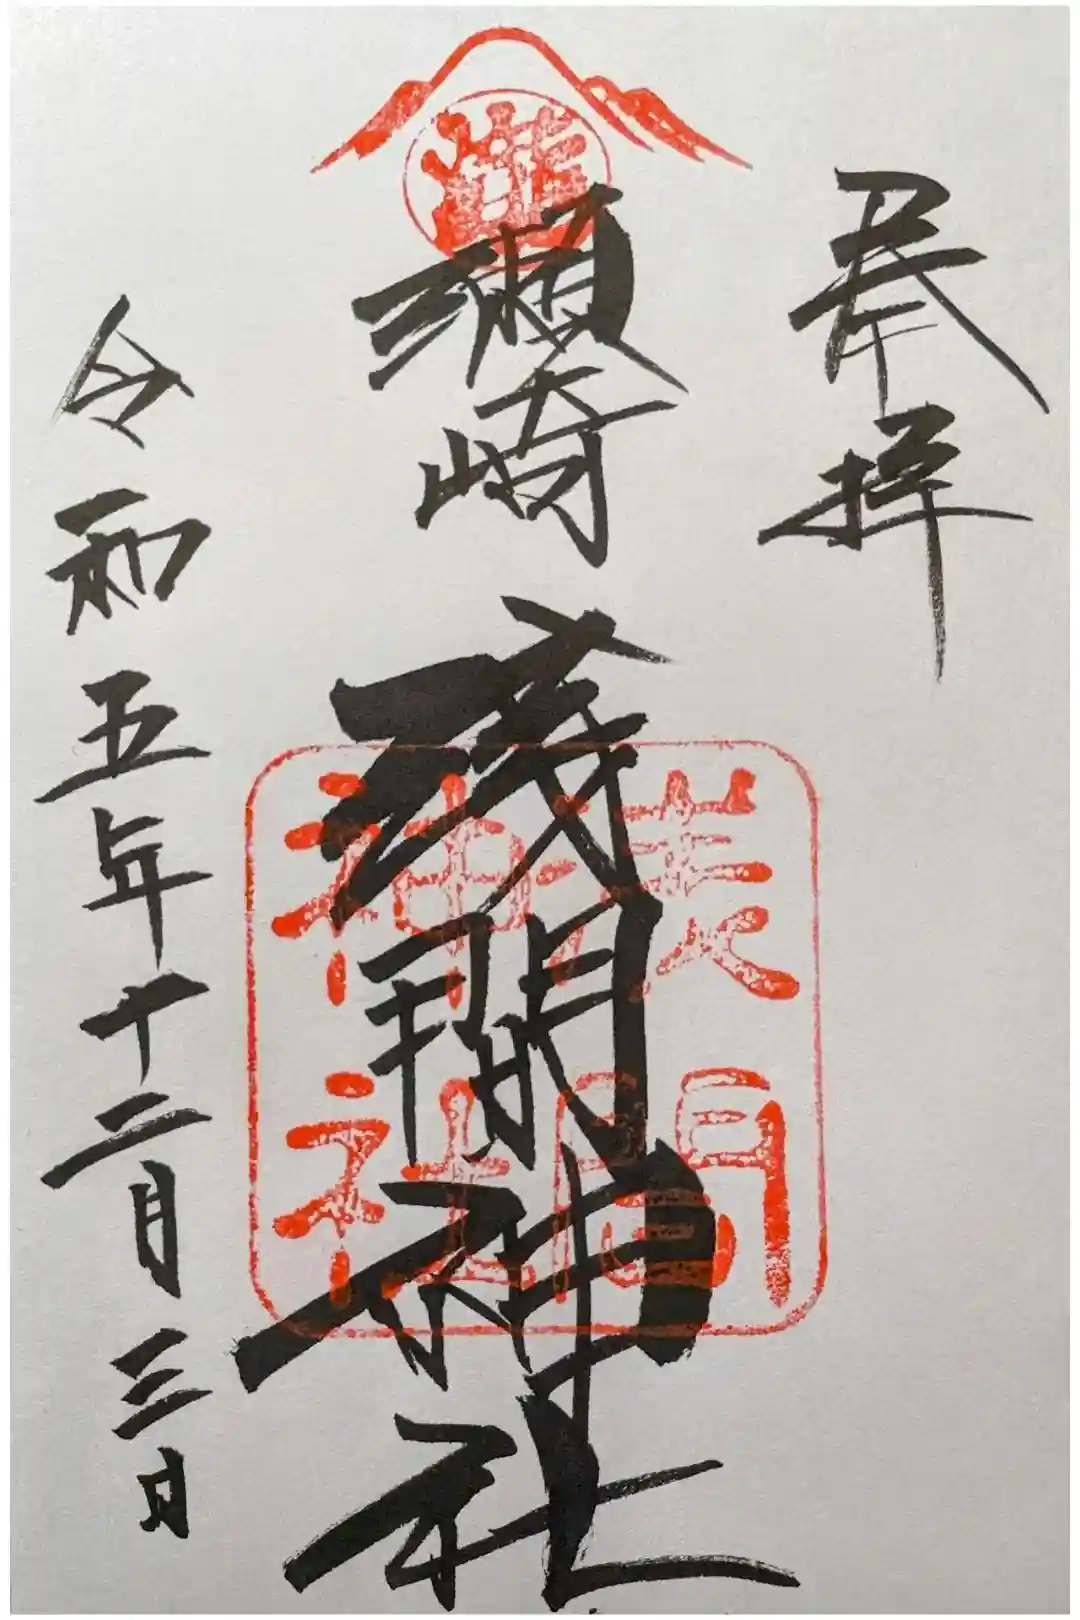 奉拝
瀬崎
浅間神社
浅間
神社
令和五年十二月三日